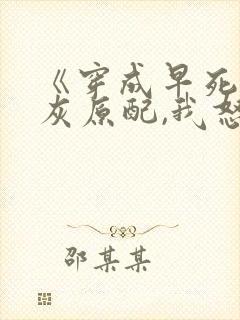 《穿成早死
灰原配,我怒
邵某某